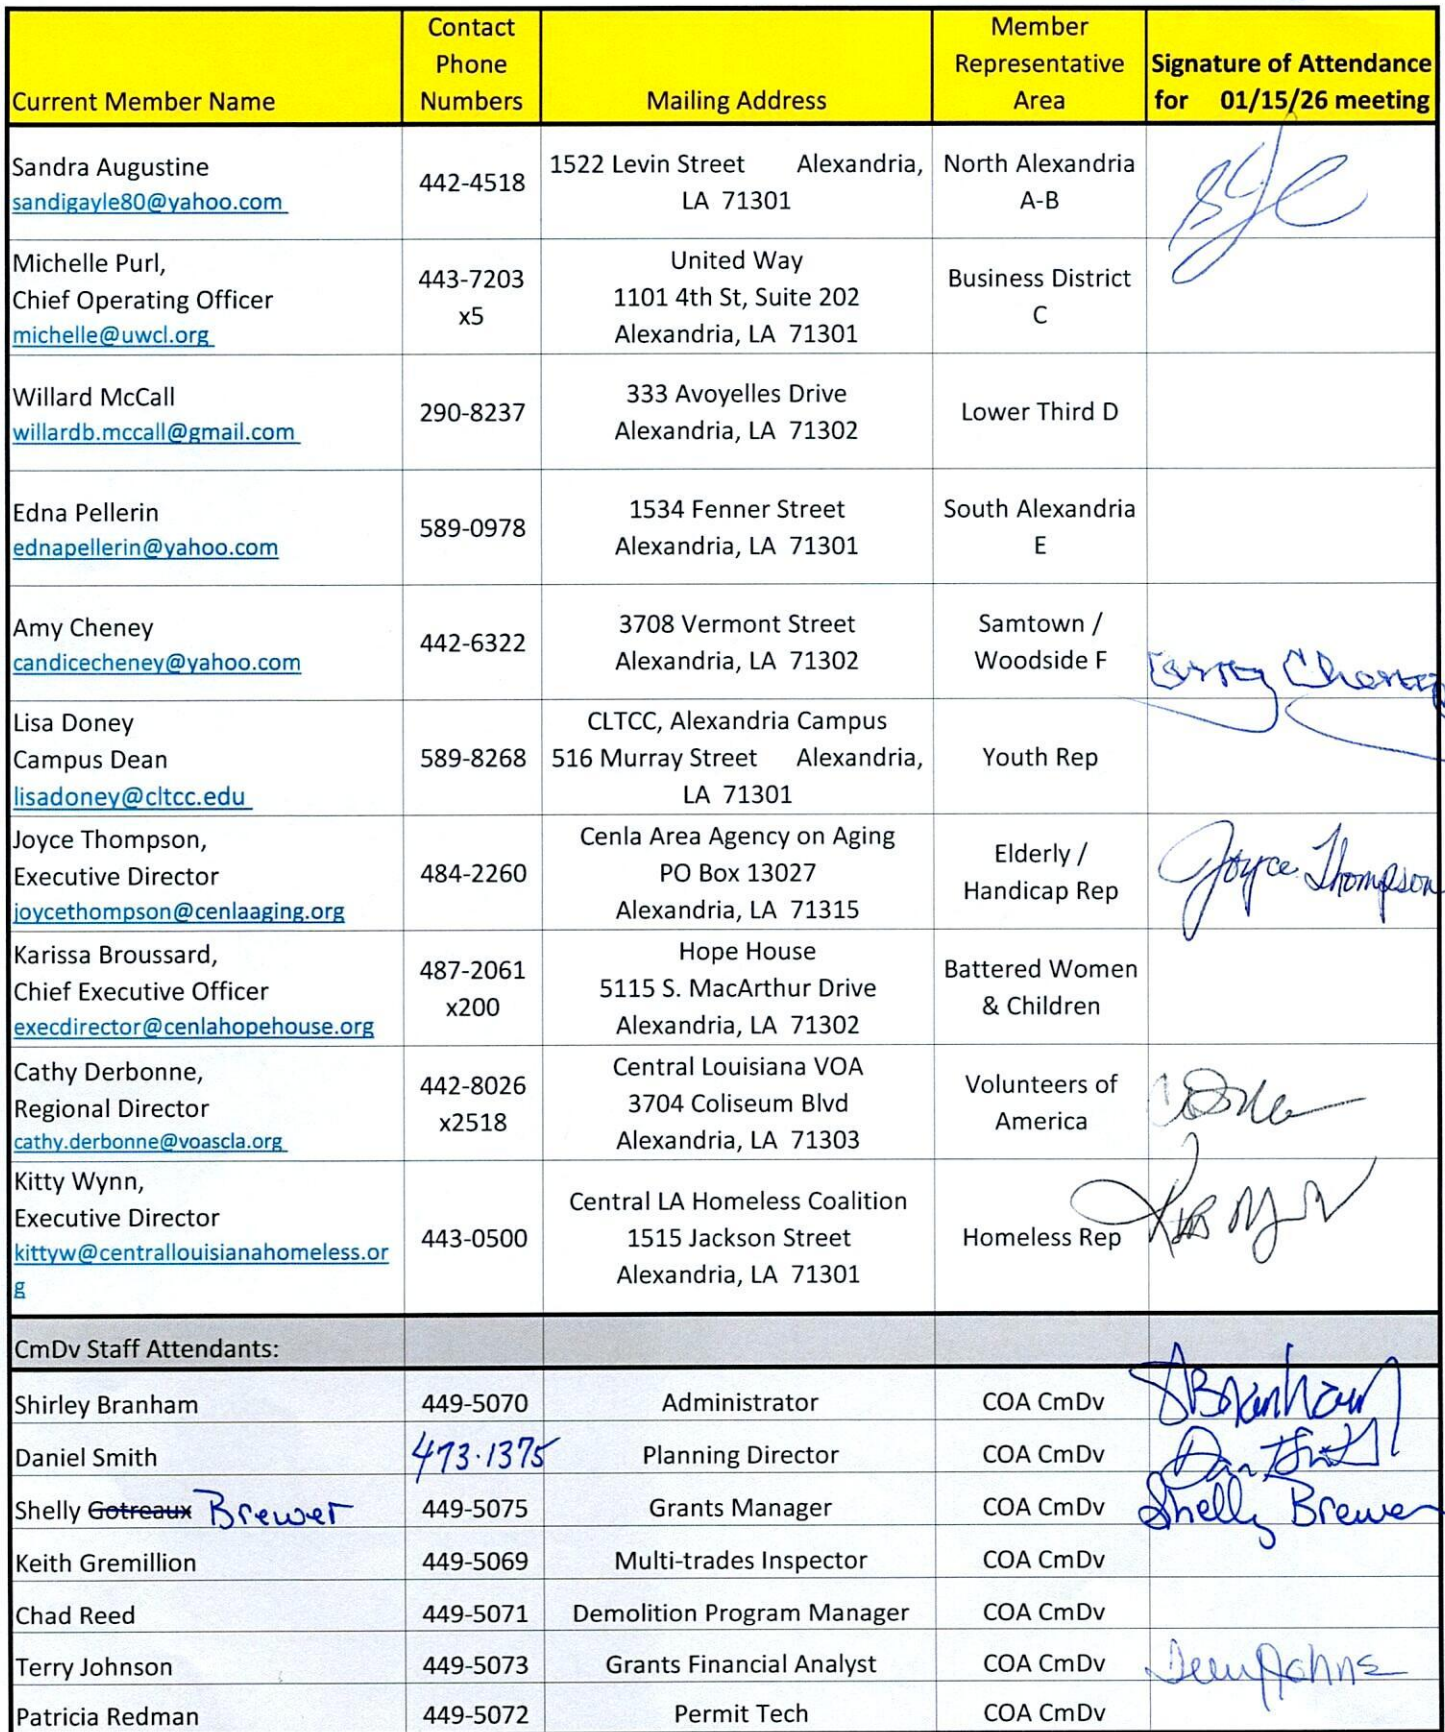 Current Member Name
Contact Phone Numbers
Mailing Address
Member Representative Area
Signature of Attendance for 01/15/26 meeting
Sandra Augustine
sandigayle80@yahoo.com
442-4518
1522 Levin Street Alexandria,
LA 71301
North Alexandria
A-B
Michelle Purl,
Chief Operating Officer
michelle@uwcl.org
443-7203
x5
United Way
1101 4th St, Suite 202
Alexandria, LA 71301
Business District
C
Willard McCall
willardb.mccall@gmail.com
290-8237
333 Avoyelles Drive
Alexandria, LA 71302
Lower Third D
Edna Pellerin
ednapellerin@yahoo.com
589-0978
1534 Fenner Street
Alexandria, LA 71301
South Alexandria
E
Amy Cheney
candicecheney@yahoo.com
442-6322
3708 Vermont Street
Alexandria, LA 71302
Samtown /
Woodside F
Lisa Doney
Campus Dean
lisadoney@cltcc.edu
589-8268
CLTCC, Alexandria Campus
516 Murray Street Alexandria,
LA 71301
Youth Rep
Joyce Thompson,
Executive Director
joycethompson@cenlaaging.org
484-2260
Cenla Area Agency on Aging
PO Box 13027
Alexandria, LA 71315
Elderly /
Handicap Rep
Joyce Thompson
Karissa Broussard,
Chief Executive Officer
execdirector@cenlahopehouse.org
487-2061
x200
Hope House
5115 S. MacArthur Drive
Alexandria, LA 71302
Battered Women
& Children
Cathy Derbonne,
Regional Director
cathy.derbonne@voascla.org
442-8026
x2518
Central Louisiana VOA
3704 Coliseum Blvd
Alexandria, LA 71303
Volunteers of
America
Kitty Wynn,
Executive Director
kittyw@centrallouisianahomeless.or
g
443-0500
Central LA Homeless Coalition
1515 Jackson Street
Alexandria, LA 71301
Homeless Rep
CmDv Staff Attendants:
Shirley Branham 449-5070 Administrator COA CmDv SBranham
Daniel Smith 473-1375 Planning Director COA CmDv
Shelly Gotreaux Brewer 449-5075 Grants Manager COA CmDv Shelly Brewer
Keith Gremillion 449-5069 Multi-trades Inspector COA CmDv
Chad Reed 449-5071 Demolition Program Manager COA CmDv
Terry Johnson 449-5073 Grants Financial Analyst COA CmDv
Patricia Redman 449-5072 Permit Tech COA CmDv